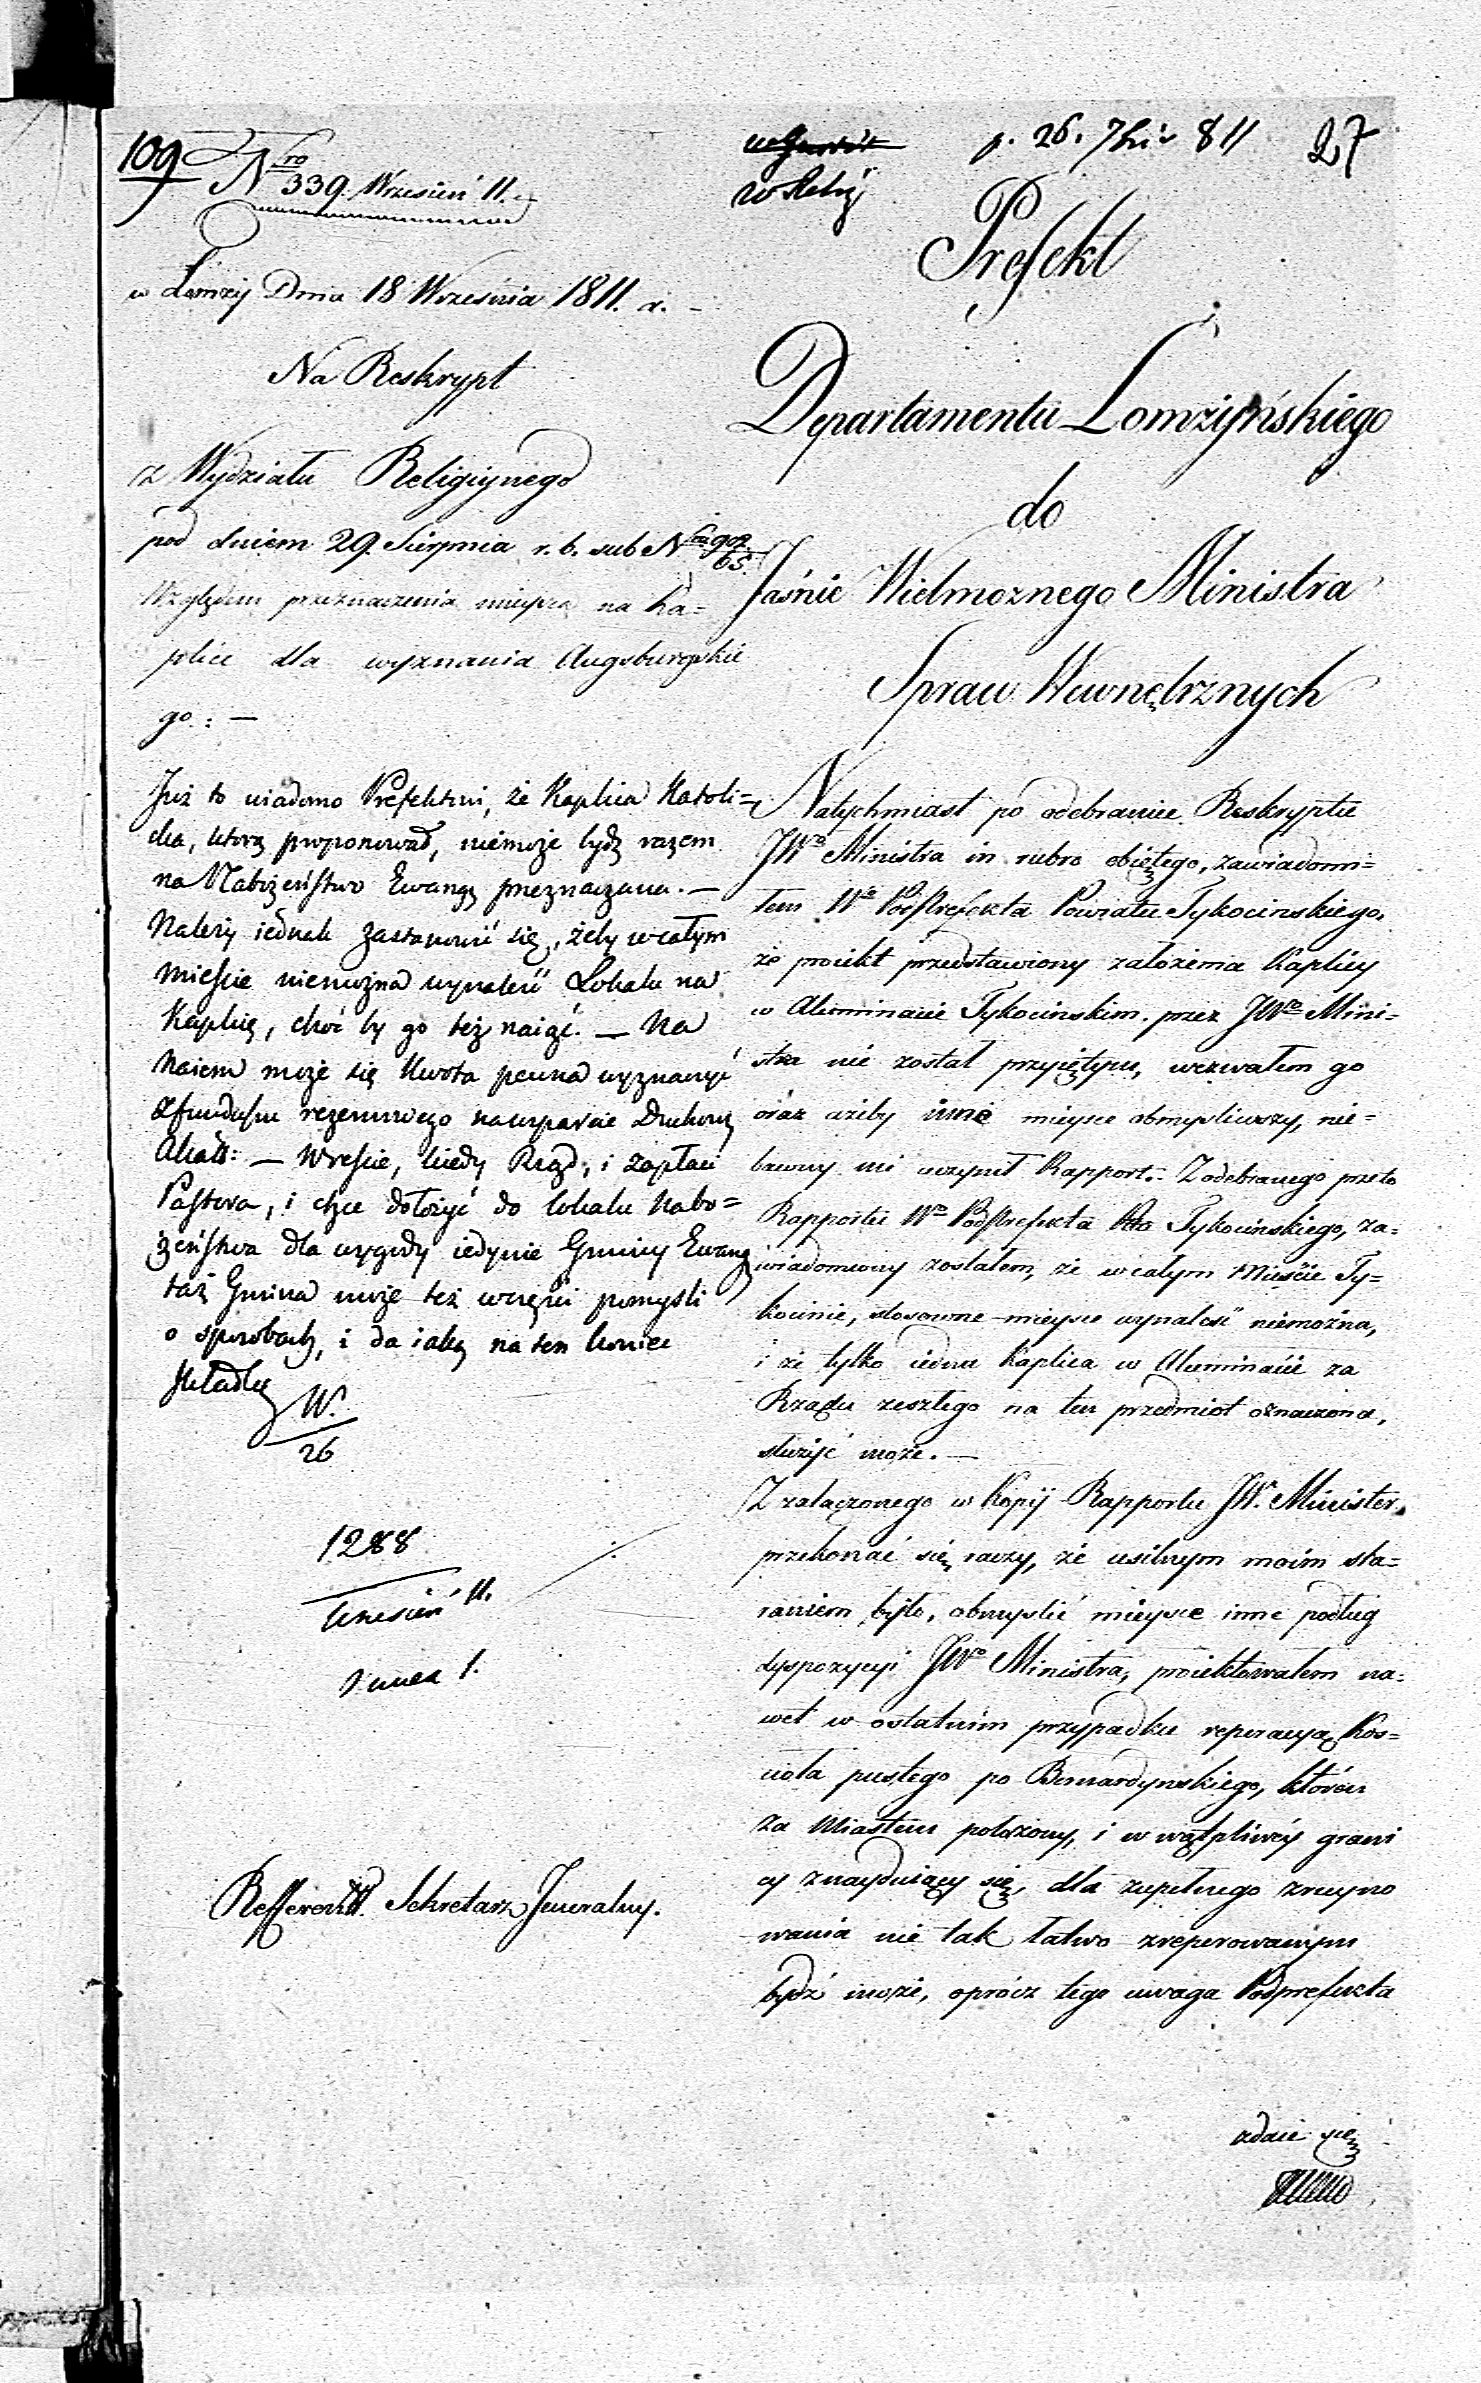 109
Nro 339. Wrzesień 11.
w Łomży Dnia 18 Września 1811. r.
Na Reskrypt
z Wydziału Religiynego
pod dniem 29. Sierpnia r. b. sub Nro 902/65.
Względem przeznaczenia mieysca na Ka=
plicę dla wyznania Augsburgskie
go : —
Już to wiadomo Prefektowi, że Kaplica Katoli=
cka, którą proponował, niemoże bydz razem
na Nabożeństwo Ewang. przeznaczana. —
Należy iednak zastanowić się, żeby w całym
mieście niemożna wynaleść Lokalu na
Kaplicę, choć by go też naiąć. — Na
Naiem może się Kwota pewna wyznaczyć
z funduszu rezerwowego na wsparcie Duchow.
Akat: — Wreście, kiedy Rząd, i zapłaci
Pastora, i chce dołożyć do lokalu Nabo=
żeństwa dla wygody iedynie Gminy Ewang.
taż Gmina może też w części pomyśli
o sposobach, i da iaką na ten koniec
składkę
W.
26
1288
Wrzesień 11.
Refferendt. Sekretarz Jeneralny.
w Relig
p. 26. 7bris 811
27
Prefekt
Departamentu Łomżyńskiego
do
Jaśnie Wielmożnego Ministra
Spraw Wewnętrznych
Natychmiast po odebraniu Reskryptu
JWo Ministra in rubro obiętego, zawiadomi=
łem Wo Podprefekta Powiatu Tykocinskiego,
że proiekt przedstawiony założenia Kaplicy
w Alumnacie Tykocinskim przez JWo Mini=
stra nie został przyiętym, wezwałem go
oraz ażeby inne mieysce obmyśliwszy, nie=
bawny mi uczynił Rapport. Z odebranego przeto
Rapportu Wo Podprefekta Ptu Tykocinskiego, za=
wiadomiony zostałem, że w całym Mieście Ty=
kocinie, stosowne mieysce wynaleść niemożna,
i że tylko iedna Kaplica w Alumnacie za
Rządu zeszłego na ten przedmiot oznaczona,
służyć może. —
Z załączonego w Kopij Rapportu JW. Minister
przekonać się raczy, że usilnym moim sta=
raniem było, obmyślić mieysce inne podług
dyspozycyi JWo Ministra, proiektowałem na=
wet w ostatnim przypadku reperacyą Koś=
cioła pustego po Bernardynskiego, któren
za Miastem położony, i w wątpliwéy grani
cy znayduiący się, dla zupełnego zruyno
wania nie tak łatwo zreperowanym
bydź może, oprócz tego uwaga Podprefekta
zdaie się